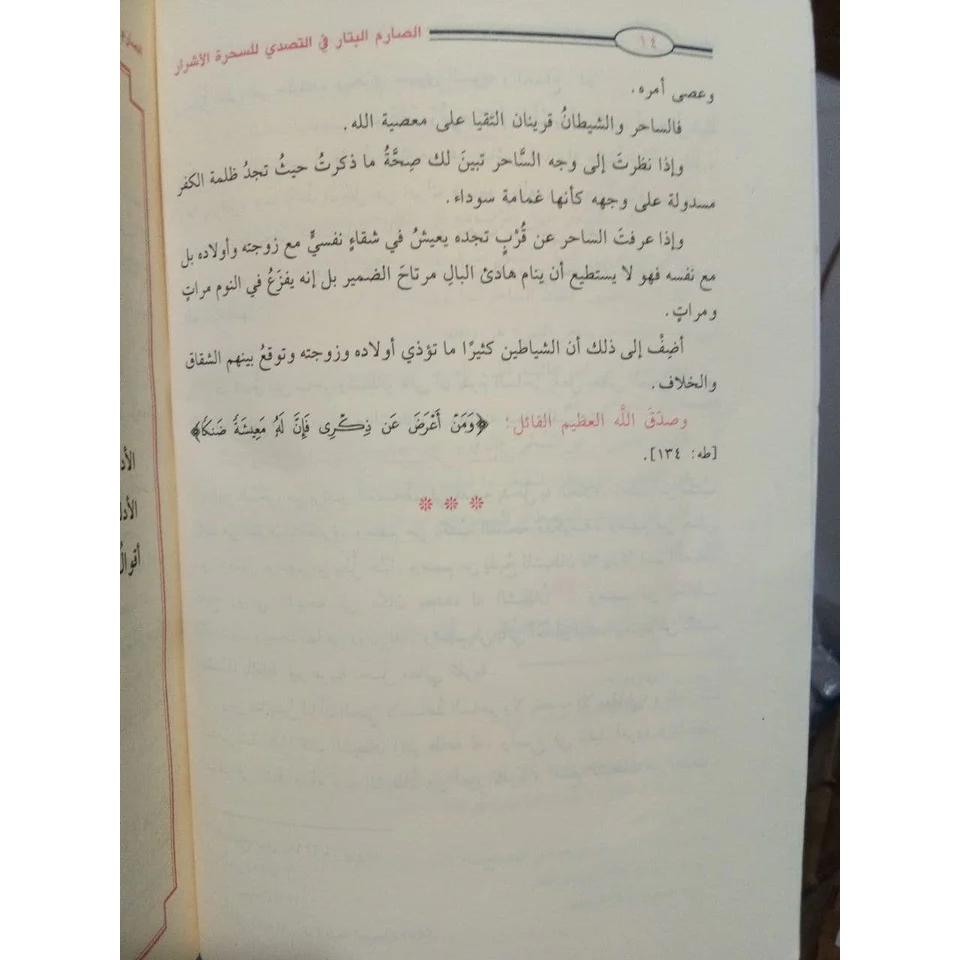 ١٤
الصارم البتار في التصدي للسحرة الأشرار
وعصى أمره.
فالساحر والشيطانُ قرينان التقيا على معصية الله.
وإذا نظرتَ إلى وجه السَّاحر تبينَ لك صِحَّةُ ما ذكرتُ حيثُ تجدُ ظلمة الكفر
مسدولة على وجهه كأنها غمامة سوداء.
وإذا عرفتَ الساحر عن قُرْبٍ تجده يعيشُ في شقاءٍ نفسيٍّ مع زوجته وأولاده بل
مع نفسه فهو لا يستطيع أن ينام هادئ البالِ مرتاحَ الضمير بل إنه يفزَعُ في النوم مراتٍ
ومراتٍ.
أضِفْ إلى ذلك أن الشياطين كثيرًا ما تؤذي أولاده وزوجته وتوقعُ بينهم الشقاق
والخلاف.
وصدَقَ اللَّه العظيم القائل: ﴿وَمَنْ أَعْرَضَ عَن ذِكْرِى فَإِنَّ لَهُۥ مَعِيشَةً ضَنكًا﴾
[طه: ١٣٤].